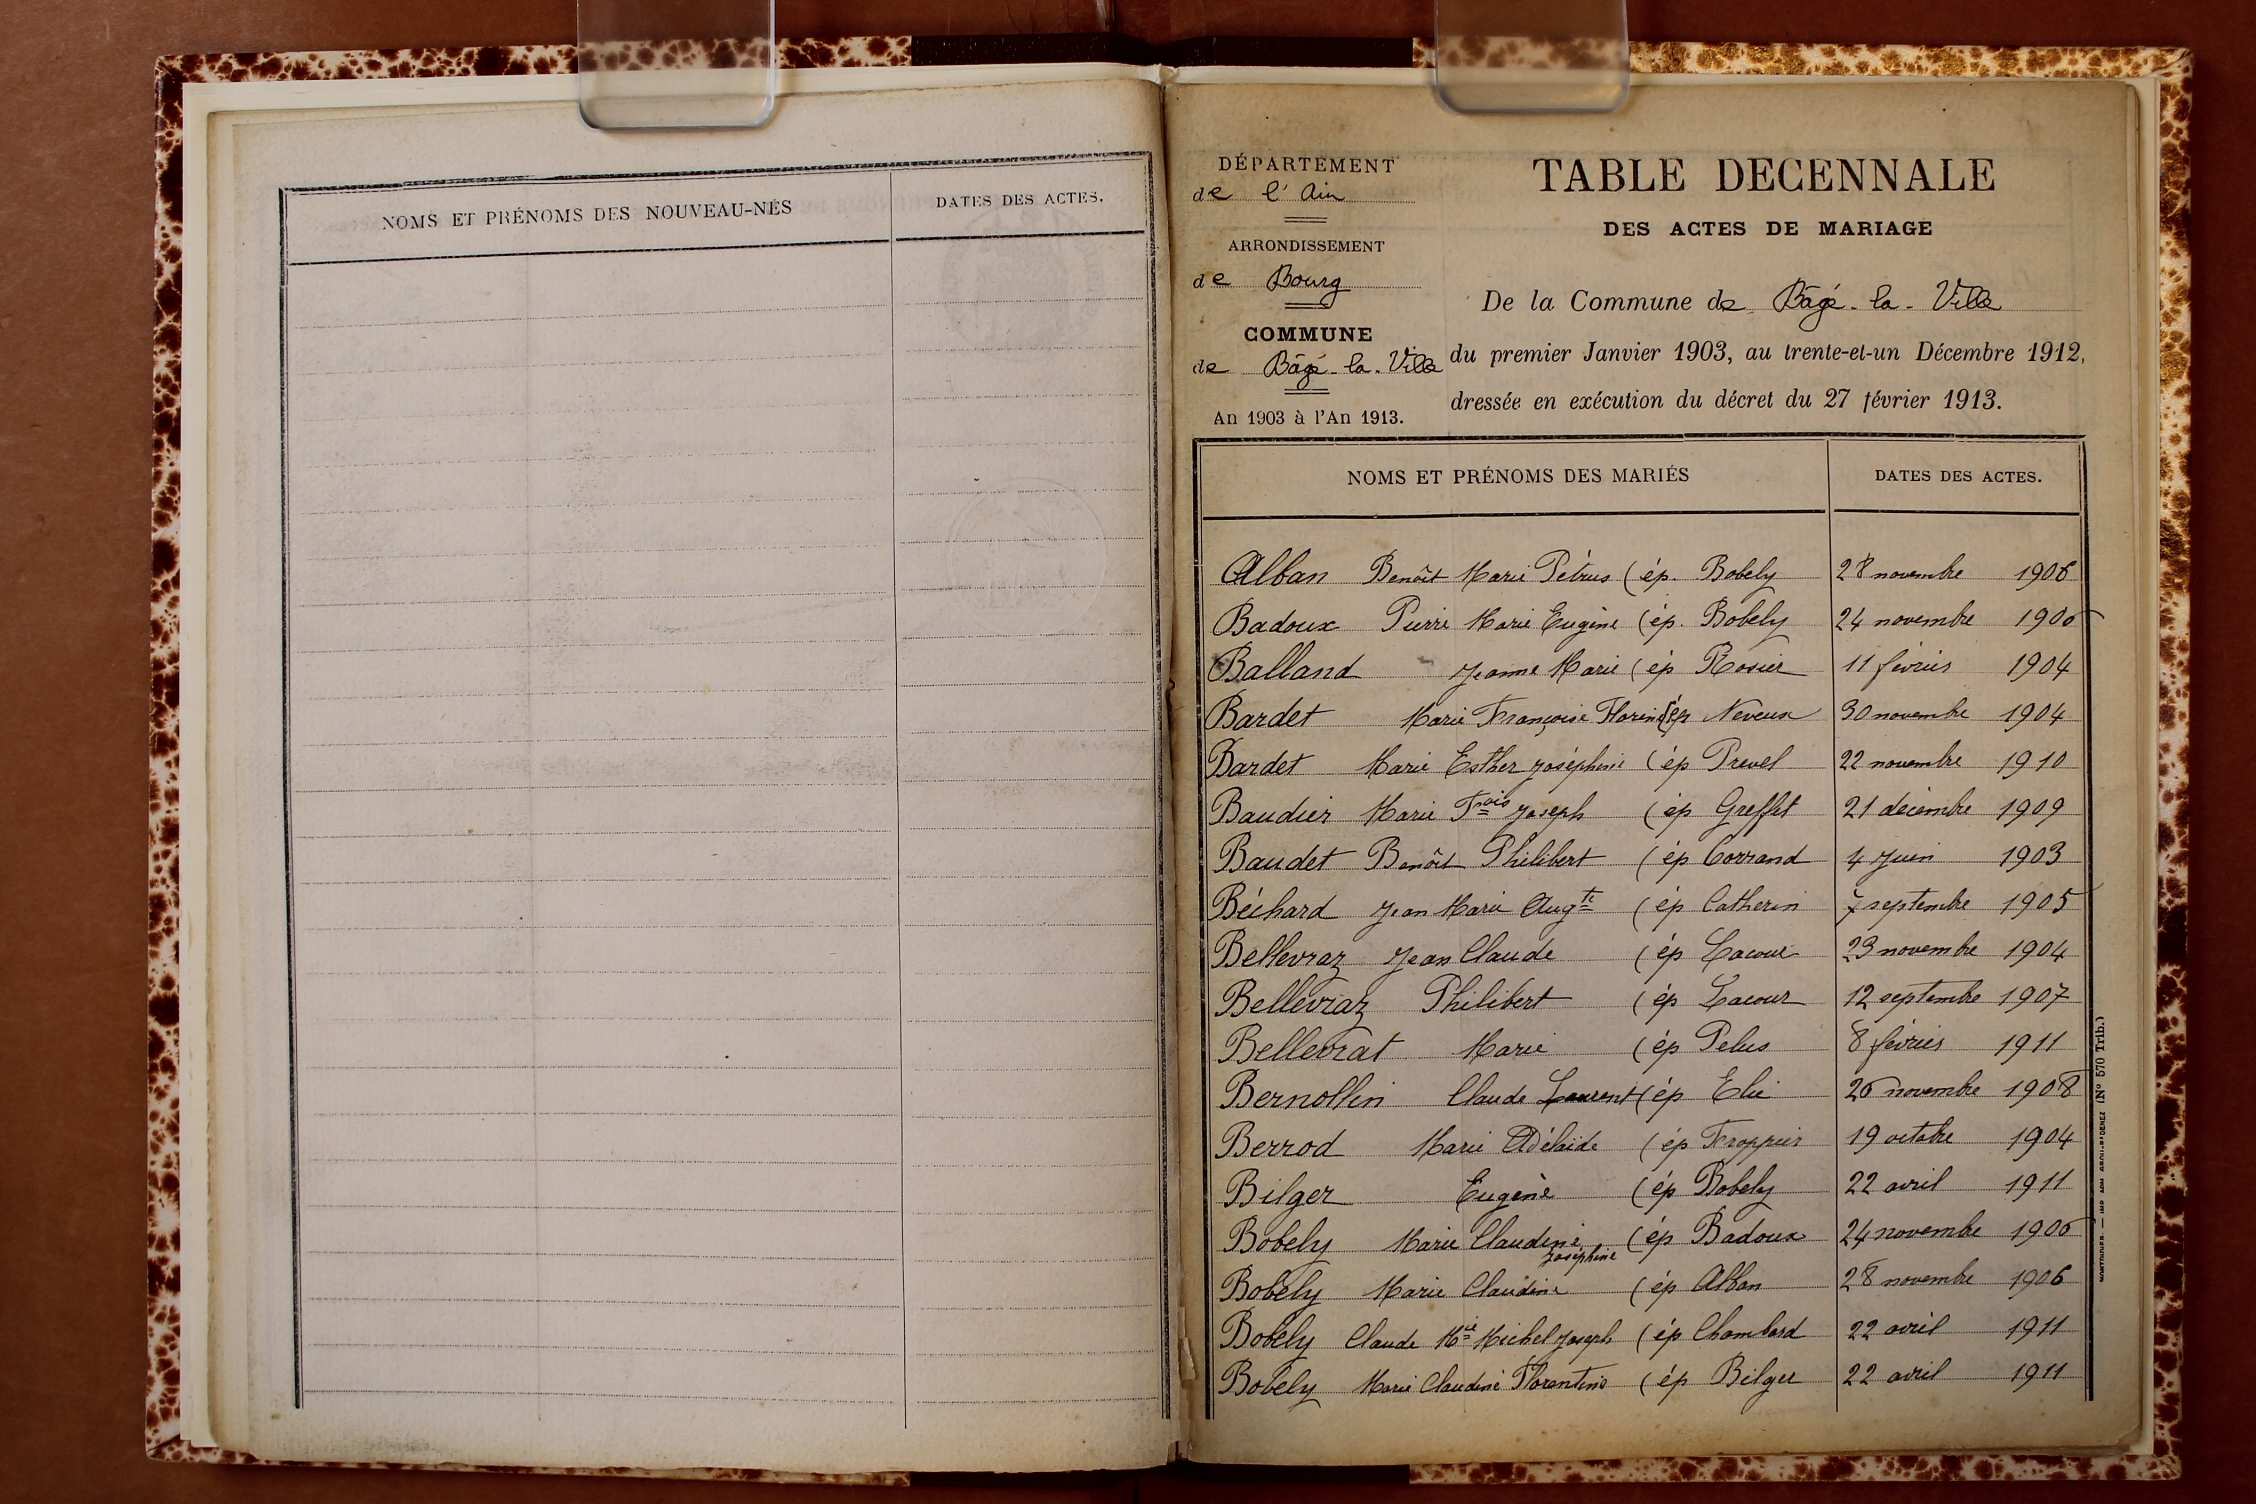 NOMS ET PRÉNOMS DES NOUVEAU-NÉS
DATES DES ACTES.
DÉPARTEMENT
de l'Ain
ARRONDISSEMENT
de Bourg
COMMUNE
de Bâgé-la-Ville
An 1903 à l'An 1913.
TABLE DECENNALE
DES ACTES DE MARIAGE
De la Commune de Bâgé-la-Ville
du premier Janvier 1903, au trente-et-un Décembre 1912,
dressée en exécution du décret du 27 février 1913.
NOMS ET PRÉNOMS DES MARIÉS DATES DES ACTES.
Alban Benôit Marie Pétrus (ép. Bobely 28 novembre 1906
Badoux Pierre Marie Eugène (ép. Bobely 24 novembre 1906
Balland Jeanne Marie (ép Rosier 11 février 1904
Bardet Marie Françoise (ép Neveux 30 novembre 1904
Bardet Marie Esther Joséphine (ép Prevel 22 novembre 1910
Baudier Marie Fçois Joseph (ép Greffet 21 décembre 1909
Baudet Benôit Philibert (ép Corrand 4 Juin 1903
Béchard Jean Marie Augte (ép Catherin 7 septembre 1905
Bellevraz Jean Claude (ép Lacour 23 novembre 1904
Bellevraz Philibert (ép Lacour 12 septembre 1907
Bellevrat Marie (ép Pelus 8 février 1911
Bernollin Claude Laurent (ép Elie 26 novembre 1908
Berrod Marie Adélaïde (ép Froppier 19 octobre 1904
Bilger Eugène (ép Bobely 22 avril 1911
Bobely Marie Claudine Joséphine (ép Badoux 24 novembre 1906
Bobely Marie Claudine (ép Alban 28 novembre 1906
Bobely Claude Mie Michel Joseph (ép Chambard 22 avril 1911
Bobely Marie Claudine Florentine (ép Bilger 22 avril 1911
(N° 570 Trib.)